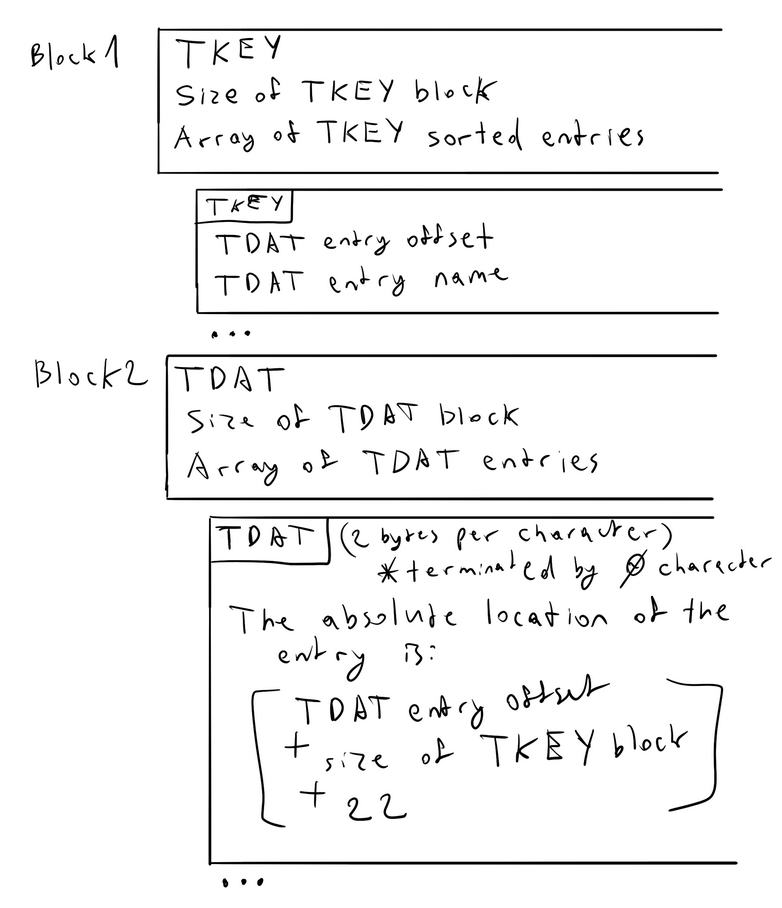 Block1
TKEY
Size of TKEY block
Array of TKEY sorted entries
TKEY
TDAT entry offset
TDAT entry name
...
Block2
TDAT
Size of TDAT block
Array of TDAT entries
TDAT (2 bytes per character)
*terminated by Ø character
The absolute location of the
entry is:
TDAT entry offset
+ size of TKEY block
+ 22
...